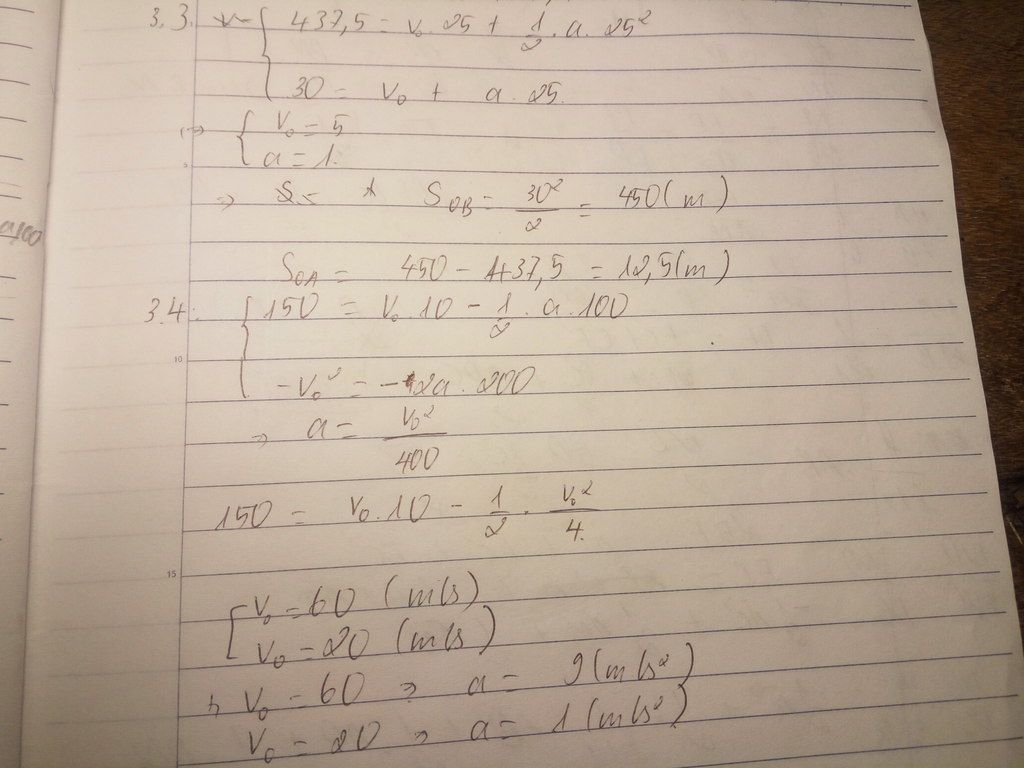 3.3. { 437,5 = v₀.25 + 1/2 . a. 25²
30 = v₀ + a. 25.
{ v₀ = 5
a = 1.
=> S_OB = 30²/2 = 450 (m)
S_OA = 450 - 437,5 = 12,5 (m)
3.4: { 150 = v₀.10 - 1/2 . a.100
-v₀² = -2a.200
=> a = v₀²/400
150 = v₀.10 - 1/2 . v₀²/4.
10
15
[ v₀ = 60 (m/s)
v₀ = 20 (m/s)
v₀ = 60 => a = 9 (m/s²)
v₀ = 20 => a = 1 (m/s²)